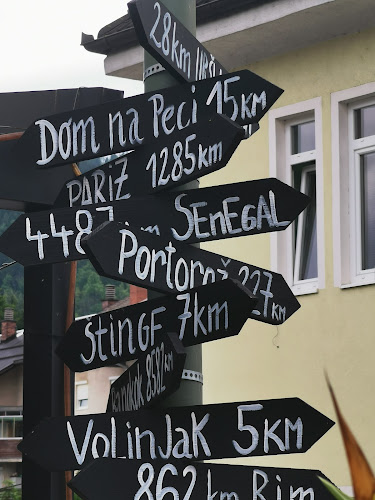 28km
Dom na Peci 15km
PARIZ 1285km
4487 km SEnEGAL
Portorož 227 km
ŠtinGE 7km
Bangkok 8582 km
VolinJAK 5KM
862 km Rim